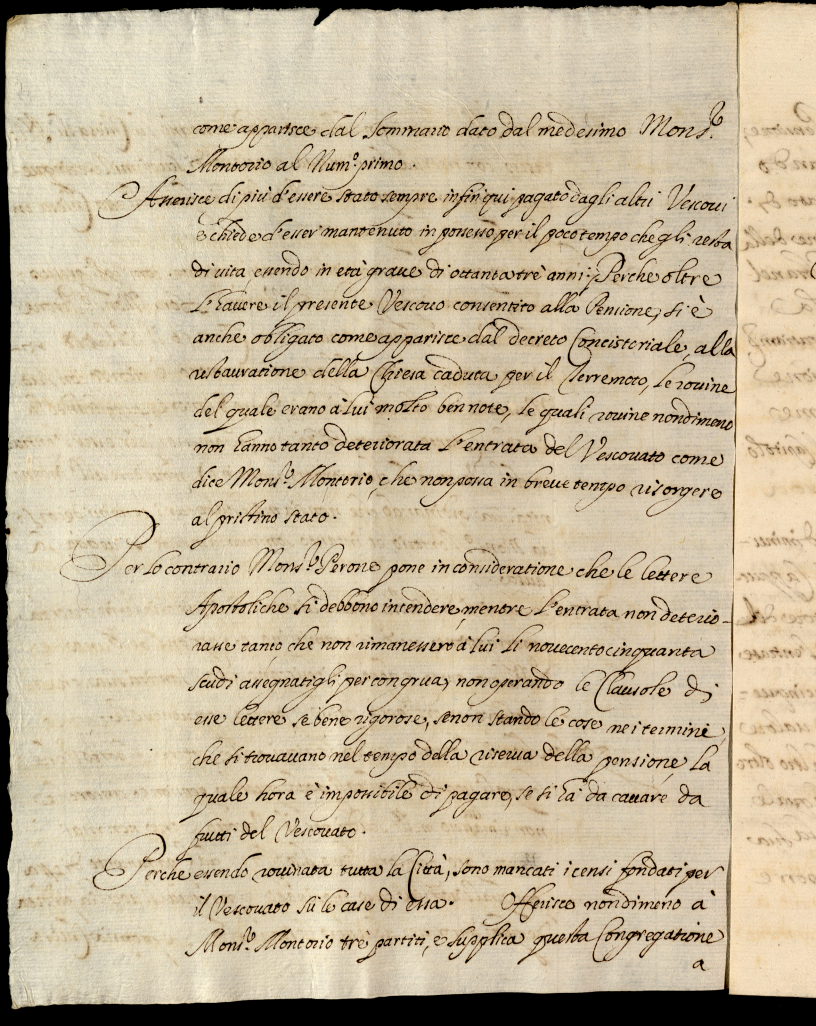 come apparisce dal Sommario dato dal medesimo Mons.r
Montorio al Num.o primo.
Asserisce di più d'essere stato sempre infin qui pagato dagli altri Vescovi
e chiede d'esser mantenuto in possesso per il poco tempo che gli resta
di vita essendo in età grave di ottanta trè anni; Perche oltre
l'havere il presente Vescovo consentito alla Pensione, si è
anche obligato come apparisce dal decreto Concistoriale, alla
restauratione della Chiesa caduta per il Terremoto, le rovine
del quale erano à lui molto ben note, le quali rovine nondimeno
non hanno tanto deteriorata l'entrata del Vescovato come
dice Mons.r Montorio, che non possa in breve tempo risorgere
al pristino stato.
Per lo contrario Mons.r Perone pone in consideratione che le lettere
Apostoliche si debbono intendere, mentre l'entrata non deterio-
rasse tanto che non rimanessero à lui li novecento cinquanta
scudi assegnatigli per congrua, non operando le Clausole di
esse lettere se bene rigorose, se non stando le cose ne i termini,
che si trovavano nel tempo della riserva della pensione, la
quale hora è impossibile di pagare, se si hà da cavare da
frutti del Vescovato.
Perche essendo rovinata tutta la Città, sono mancati i censi fondati per
il Vescovato sù le case di essa. Offerisce nondimeno à
Mons.r Montorio trè partiti, e supplica questa Congregatione
a